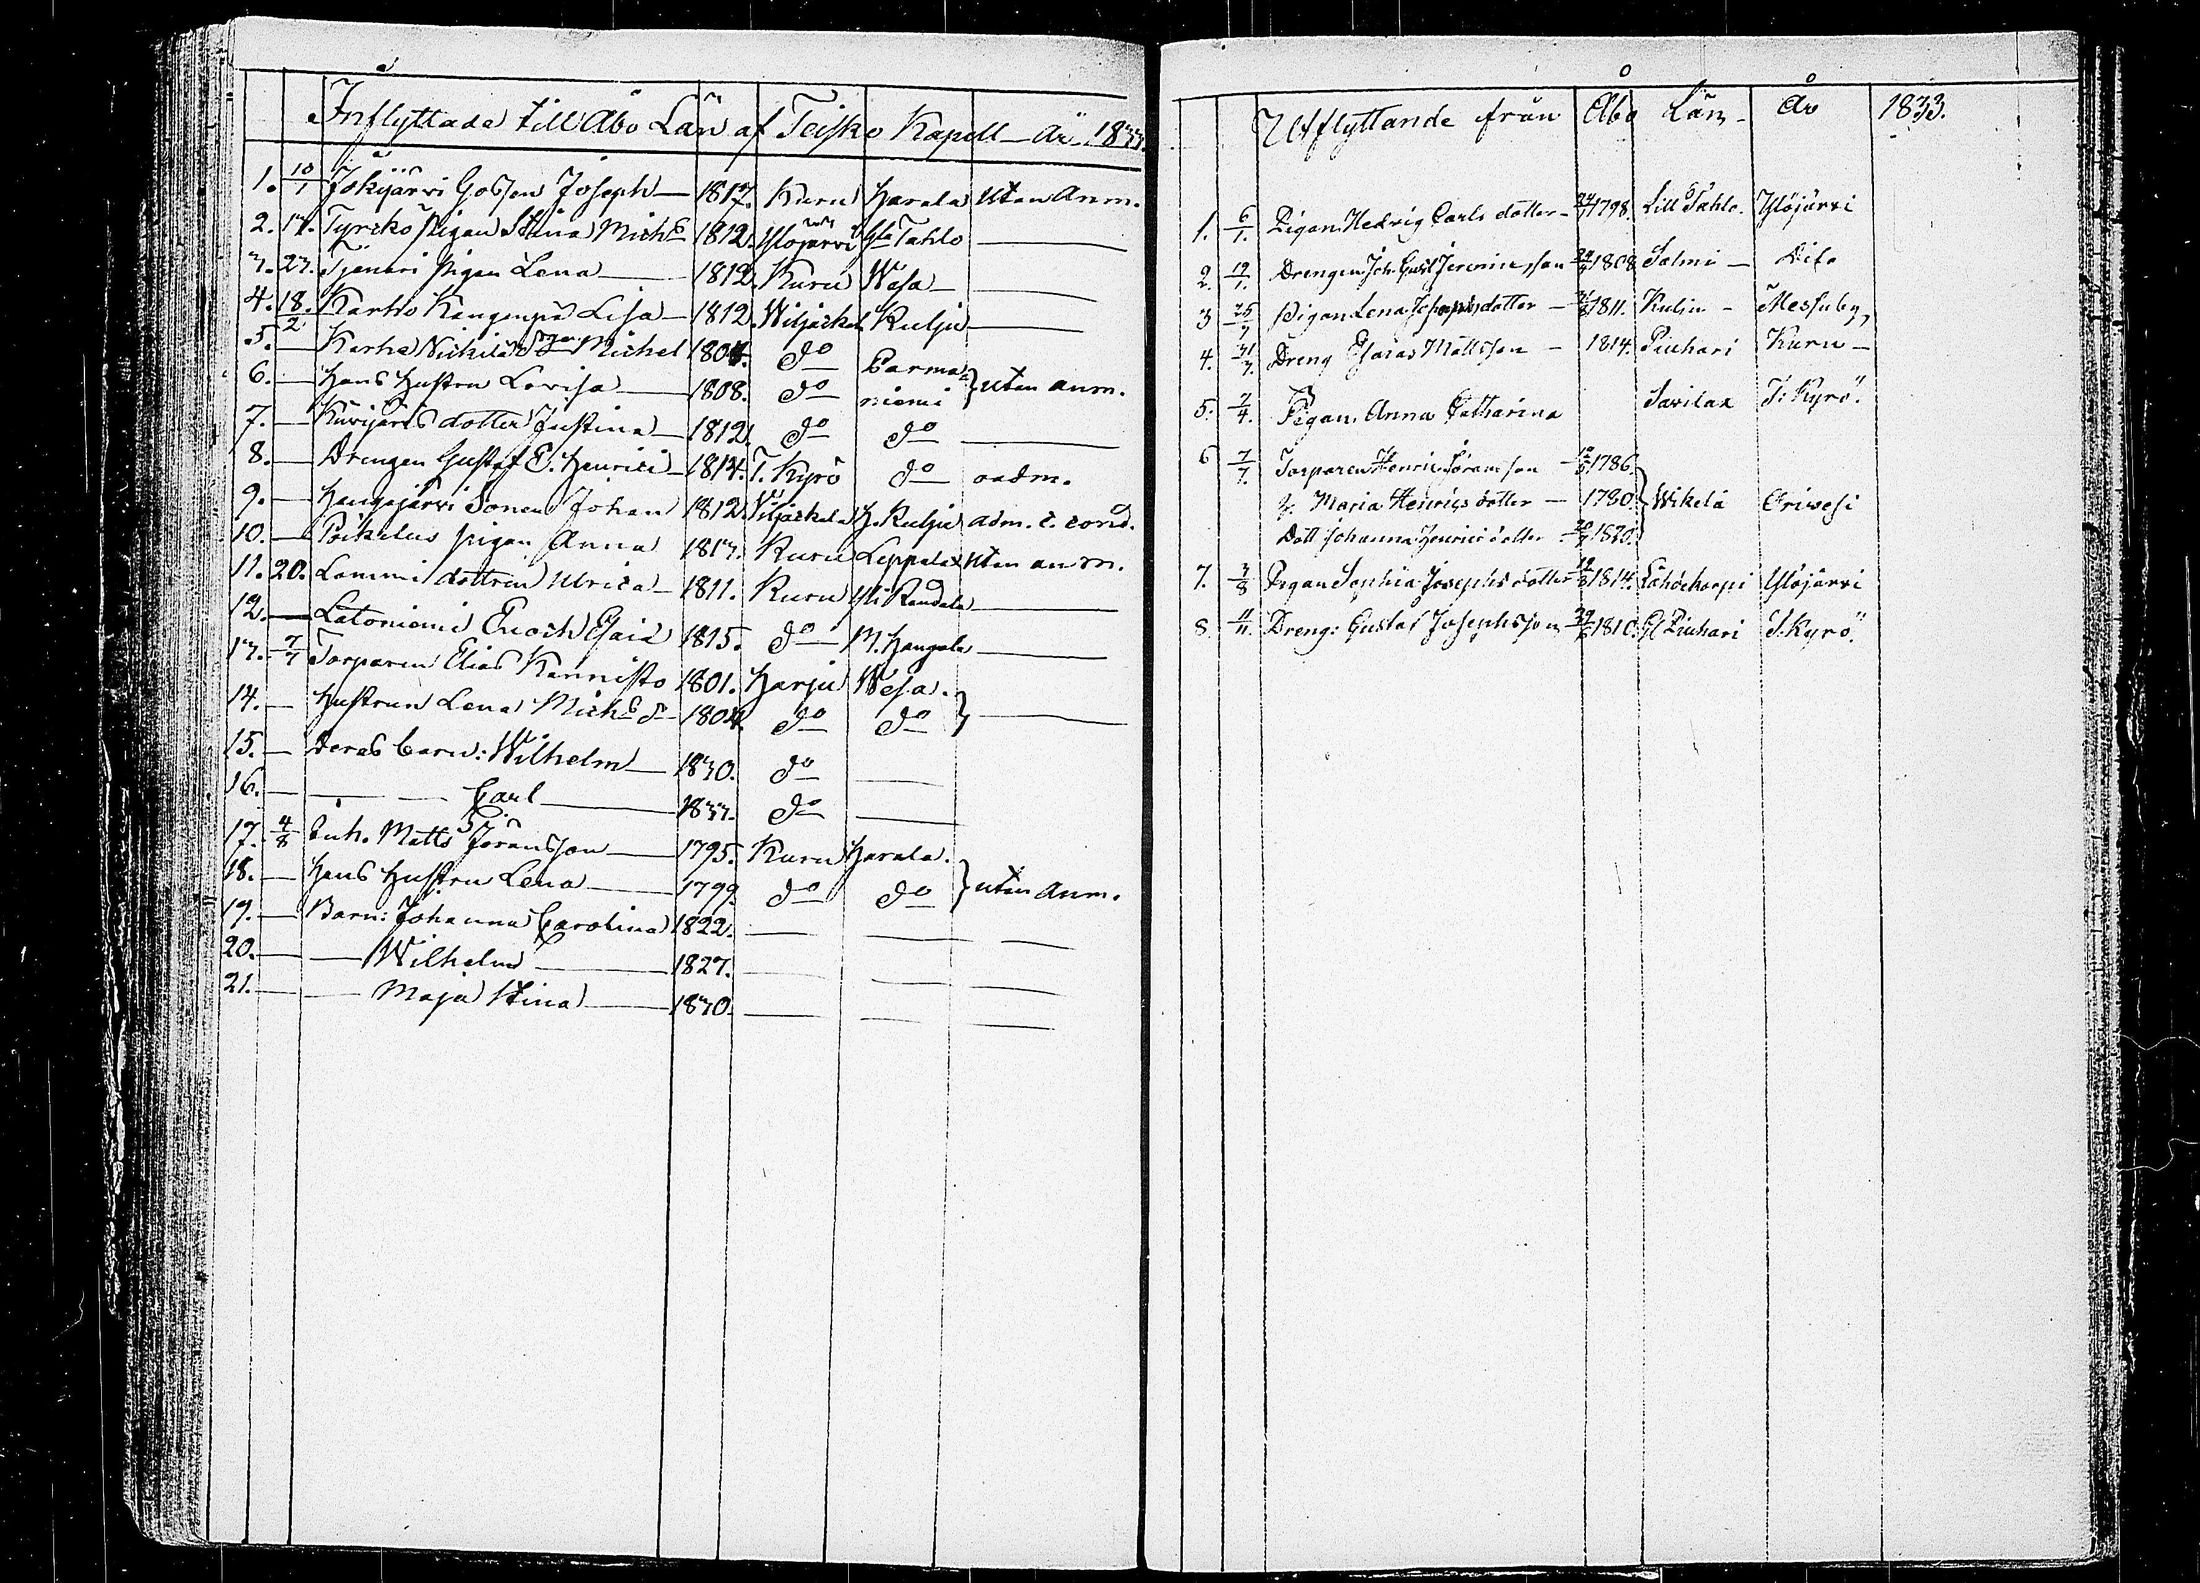 Inflyttade till Åbo Län af Teisko Kapell År 1833.
1. 10/1 Jokijärvi Gossen Joseph — 1817. Kuru Harala utan Anm.
2. 17. Tyrckö pigan Stina Mich 1812. Ylöjärvi Yli Tahlo —
3. 23. Tjenari pigan Lena — 1812. Kuru Wesa —
4. 18/2 Karho Kangenpä Lisa — 1812. Wiljackal Kulju —
5. — Karha Nickilä Michel 1804. do Parma
6. — Hans Hustru Lovisa — 1808. do niemi } utan anm.
7. — Kuvijärvi dotter Justina — 1812. do do —
8. — Drengen Gustaf E. Henrici — 1814. T. Kyrö do oadm.
9. — Hangajärvi Sonen Johan 1812. Viljackala H. Kulju adm. c. cond.
10. — Poikelus pigan Anna 1813. Kuru Leppälax utan anm.
11. 20. Lammi dottren Ulrica — 1811. Kuru Yli Kandala —
12. — Latoniemi Enoch Esaid 1815. do M. Hangala —
13. 7/7 Torparen Elias Kannisto 1801. Harju Wesa.
14. — Hustrun Lena Mich d 1804. do do } —
15. — Deras barn: Wilhelm — 1830. do —
16. — — — Carl — 1833. do —
17. 4/8 Inh. Matts Jöransson — 1795. Kuru Harala.
18. — Hans Hustru Lena — 1799. do do } utan Anm.
19. — Barn: Johanna Carolina 1822. — — —
20. — — Wilhelm — 1827. — — —
21. — — Maja Stina — 1830. — — —
Utflyttande från Åbo Län — År 1833.
1. 6/1. Pigan Hedrig Carls dotter — 24/1798. Lill Tahlo. Ylöjärvi
2. 19/1. Drengen Joh. Gust Jeremiesson 1808 Salmi — Dito
3 25/ Pigan Lena Josephsdotter — 1811. Kulju — Messuby,
4. 31/3. Dreng Esaias Mattsson — 1814. Piuhari Kuru —
5. 7/4. Pigan Anna Catharina Savilax T: Kyrö.
6 7/7. Torparen Henric Göransson — 1786.
h. Maria Henrics dotter — 1780. } Wikelä Orivesi
Dott Johanna Henrics dotter — 1820.
7. 3/8 Pigan Sophia Josephs dotter 1814. Lähdekorpi Ylöjärvi
8 4/11. Dreng: Gustaf Josephsson 1810. Piuhari T: Kyrö.